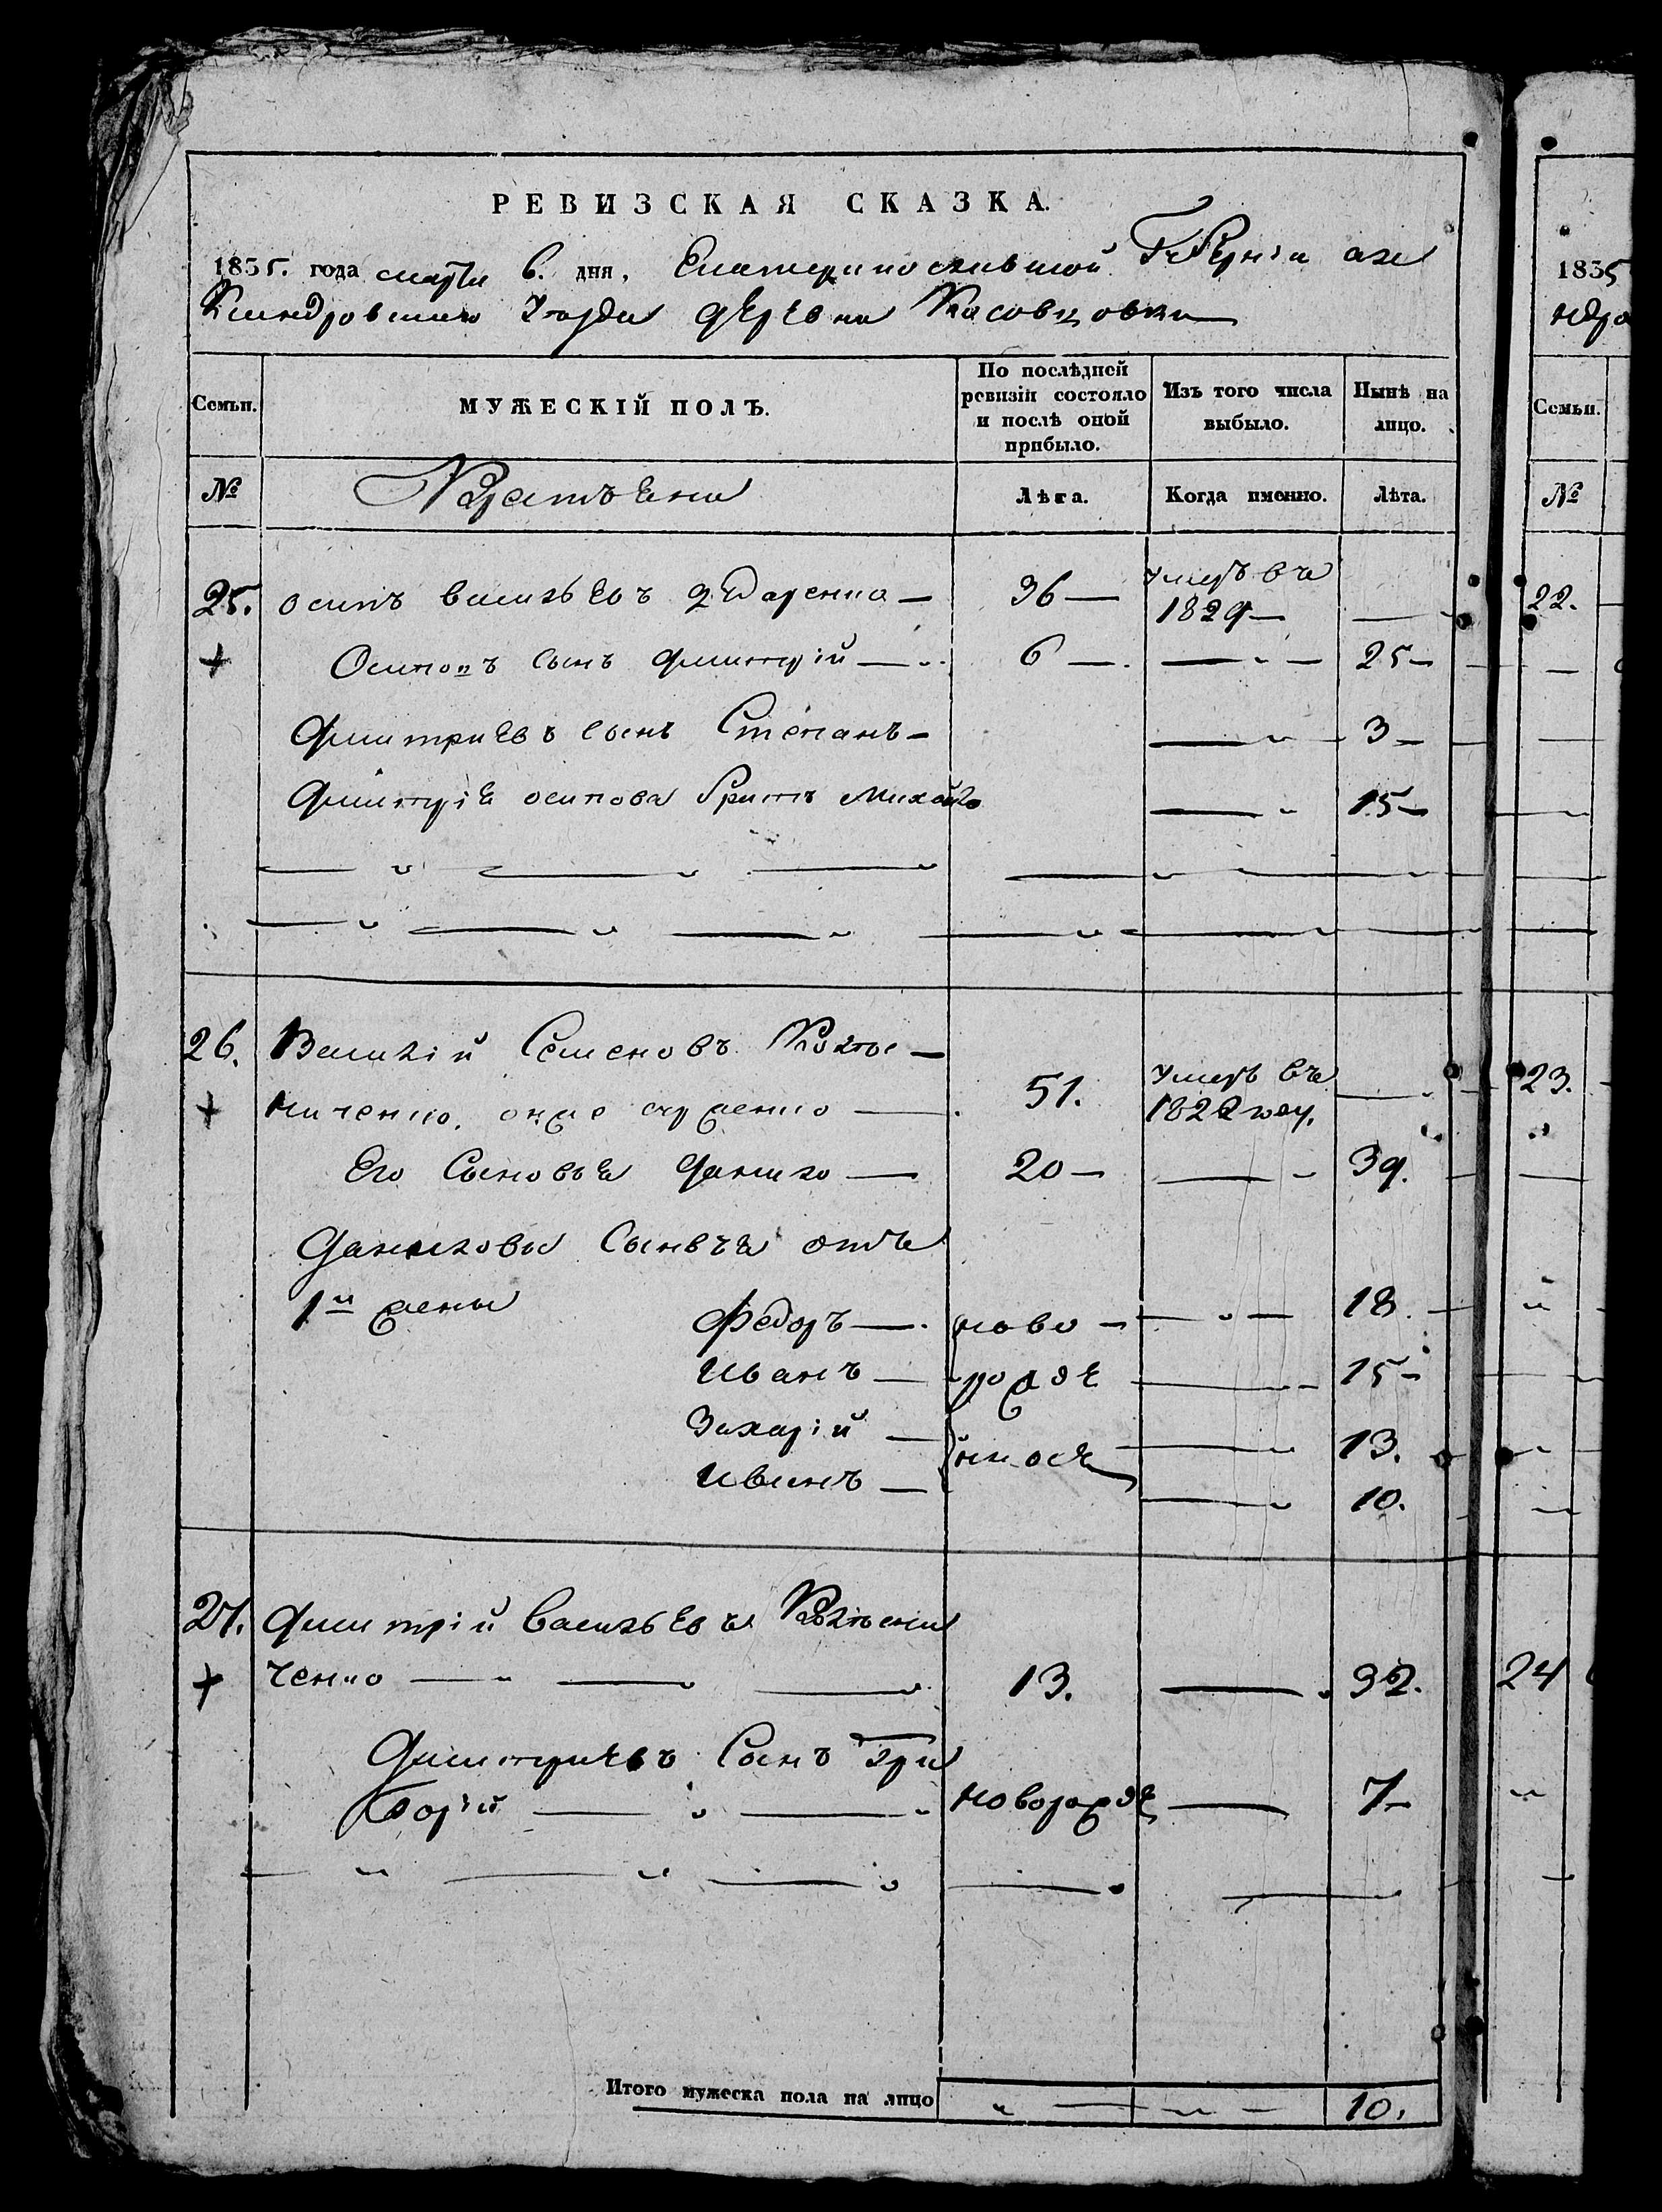 РЕВИЗСКАЯ СКАЗКА.
1835. года марта 6. дня, Екатеринославской Губерніи але
ксандровскаго уезда деревни
Семьи.
МУЖЕСКІЙ ПОЛЪ.
По послѣдней ревизіи состояло и послѣ оной прибыло.
Изъ того числа выбыло.
Нынѣ на лицо.
№
Крестьяне
Лѣта.
Когда именно.
Лѣта.
25. осипъ васильевъ 36 — умеръ въ
1829 —
Осиповъ сынъ дмитрій — 6 — 25 —
дмитриевъ сынъ Степанъ — 3 —
дмитрія осипова братъ михайло 15 —
26. Василій Семеновъ
ниченко. онже 51. умеръ въ
Его Сыновья данило — 20 — 39.
даниловы Сынвья отъ
1й жены
Федоръ — ново — 18.
Иванъ — рожде 15 —
Захарій — нные 13.
Иванъ — 10.
27. дмитрій васильевъ
ченко — 13. 32.
дмитриевъ Сынъ Гри
горій — новорожде 7 —
Итого мужеска пола на лицо 10.
1835
ндро
Семьи.
№
22.
23.
24